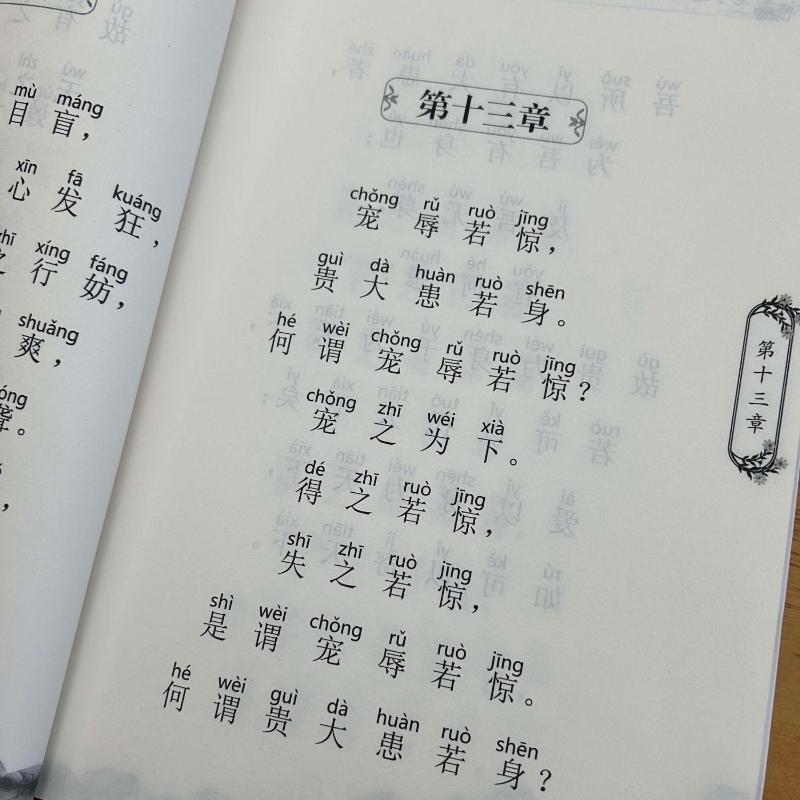 mù máng
目盲，
xīn fā kuáng
心发狂，
xíng fáng
之行妨，
shuǎng
爽，
聋。
第十三章
chǒng rǔ ruò jīng
宠辱若惊，
guì dà huàn ruò shēn
贵大患若身。
hé wèi chǒng rǔ ruò jīng
何谓宠辱若惊？
chǒng zhī wéi xià
宠之为下。
dé zhī ruò jīng
得之若惊，
shī zhī ruò jīng
失之若惊，
shì wèi chǒng rǔ ruò jīng
是谓宠辱若惊。
hé wèi guì dà huàn ruò shēn
何谓贵大患若身？
第十三章